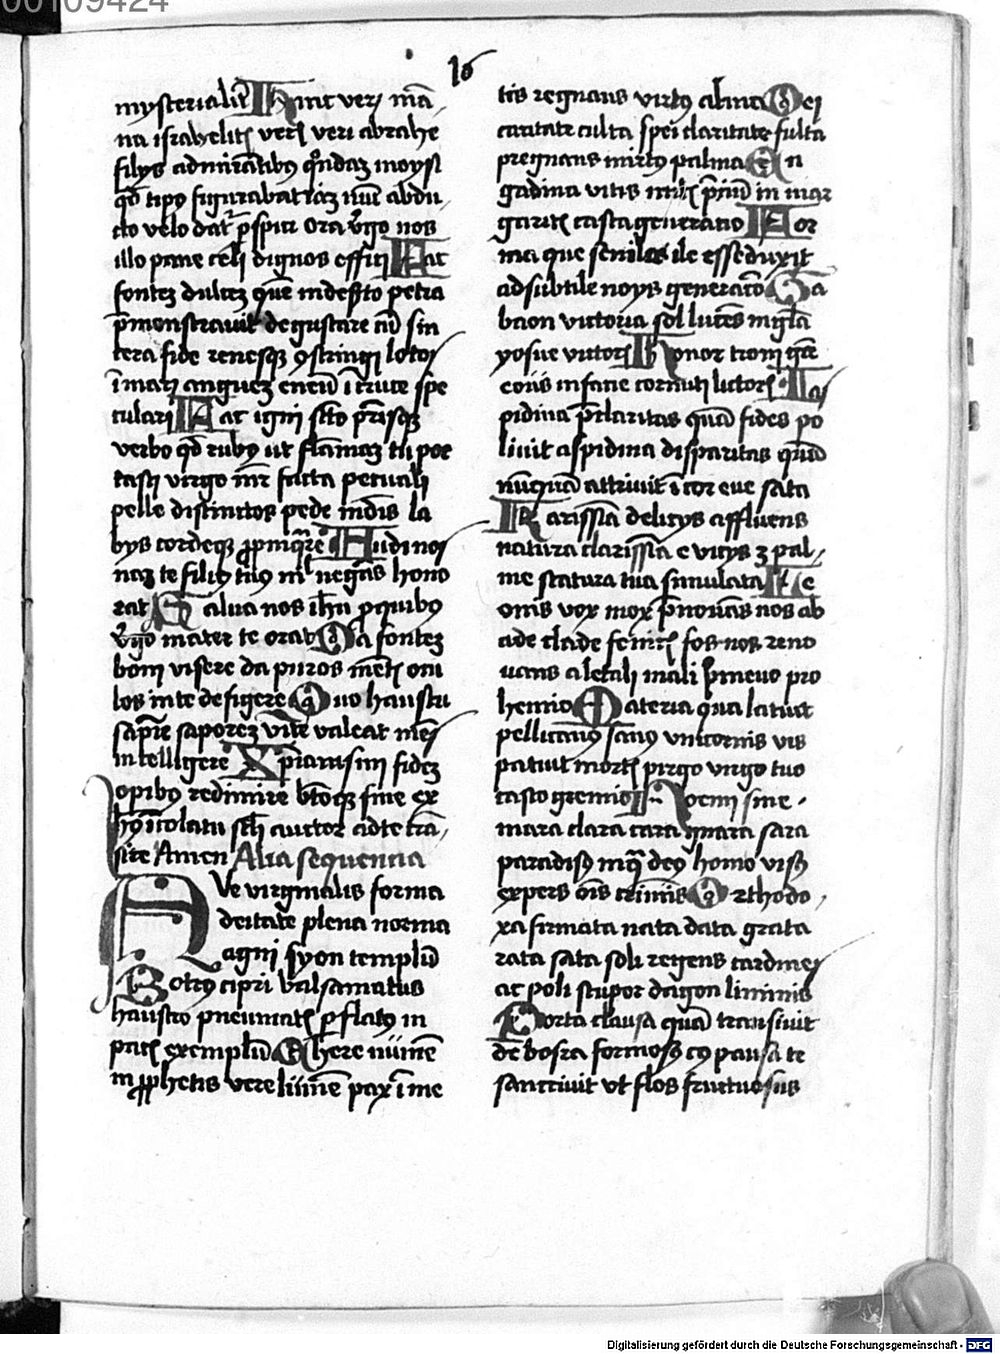 00109424
16
mysterialiū Hinc verꝫ mā
na israhelitꝫ verꝭ veri abrahe
filijs admirātibꝰ qͥndaꝫ moysi
qd̄ tipꝰ figurabat iaꝫ nūc abdu
cto velo datᷣ pspici Ora v̄go nos
illo pane celi dignos effici Fac
fonteꝫ dulceꝫ quē in deserto petra
p̄monstrauit degustare cū sin
cera fide renesqꝫ ꝯstringi lotos
ī mari angueꝫ eneū ī cruce spe
culari Fac igni scō prisqꝫ
verbo qd̄ rubꝰ ut flāmaꝫ tu por
tasti virgo mr̄ facta pecuali
pelle distinctos pede mūdis la
bijs cordeqꝫ ꝓpinqͣre Audi nos
naꝫ te filiꝰ tuꝰ nl̄ negās hono
rat Salua nos ihū ꝓ quibꝰ
v̄go mater te orat Da fonteꝫ
boni visere da puros mētꝭ ocu
los in te defigere Quo haustu
sapīe saporeꝫ vite valeat mēs
intelligere Xp̄ianismi fideꝫ
opibꝰ redimire btōqꝫ fine ex
hoc īcolatu scl̄i auctor ad te trā
sire Amen Alia sequencia
Ave virginalis forma
deitate plena norma
agni syon templū
Botrꝰ cipri balsamatus
haustro pneumatꝭ ꝑflatꝰ in
patꝭ exemplū Ethere numē
in ꝓphetis vere limē pax ī me
tis regnans virtꝰ alma Dei
caritate culta spei claritate fulta
pregnans mirtꝰ palma En
gadina vitis mr̄is pīuū in mar
garitꝭ casta generatio For
ma que seniles ile esse duxit
ad subtile noys generatō Ga
baon victoria sol lucēs in gl̄a
yosue victorꝭ Honor troni qͣtē
conis in facie cornuti luctorꝭ Ias
pidina p̄claritas quā fides po
liuit aspidina disparitas quā
nūquā attriuit ī cor eue sata
Karissīa delicijs affluens
natura clarissīa e vicijs ꝫ pal
me statura tua simulata Le
onis vox mox p̄nouās nos ab
ade clade feriētꝭ fos nos reno
uans a letali mali primeuo pro
hemio Materia qua latuit
pellicanꝰ sanꝰ vnicornis vis
patuit mortꝭ pirgo virgo tuo
casto gremio Noemi sine
mara clara cara gnara sara
paradisꝰ in qͣ deꝰ homo visꝰ
expers oīs crīnis Orthodo
xa firmata nata data grata
rata sata soli regens cardines
ac poli stupor dagon liminis
Porta clausa quā transiuit
de bosra formosꝰ cꝰ pausa te
sanctiuit vt flos fructuosus
Digitalisierung gefördert durch die Deutsche Forschungsgemeinschaft - DFG